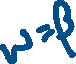 w=β